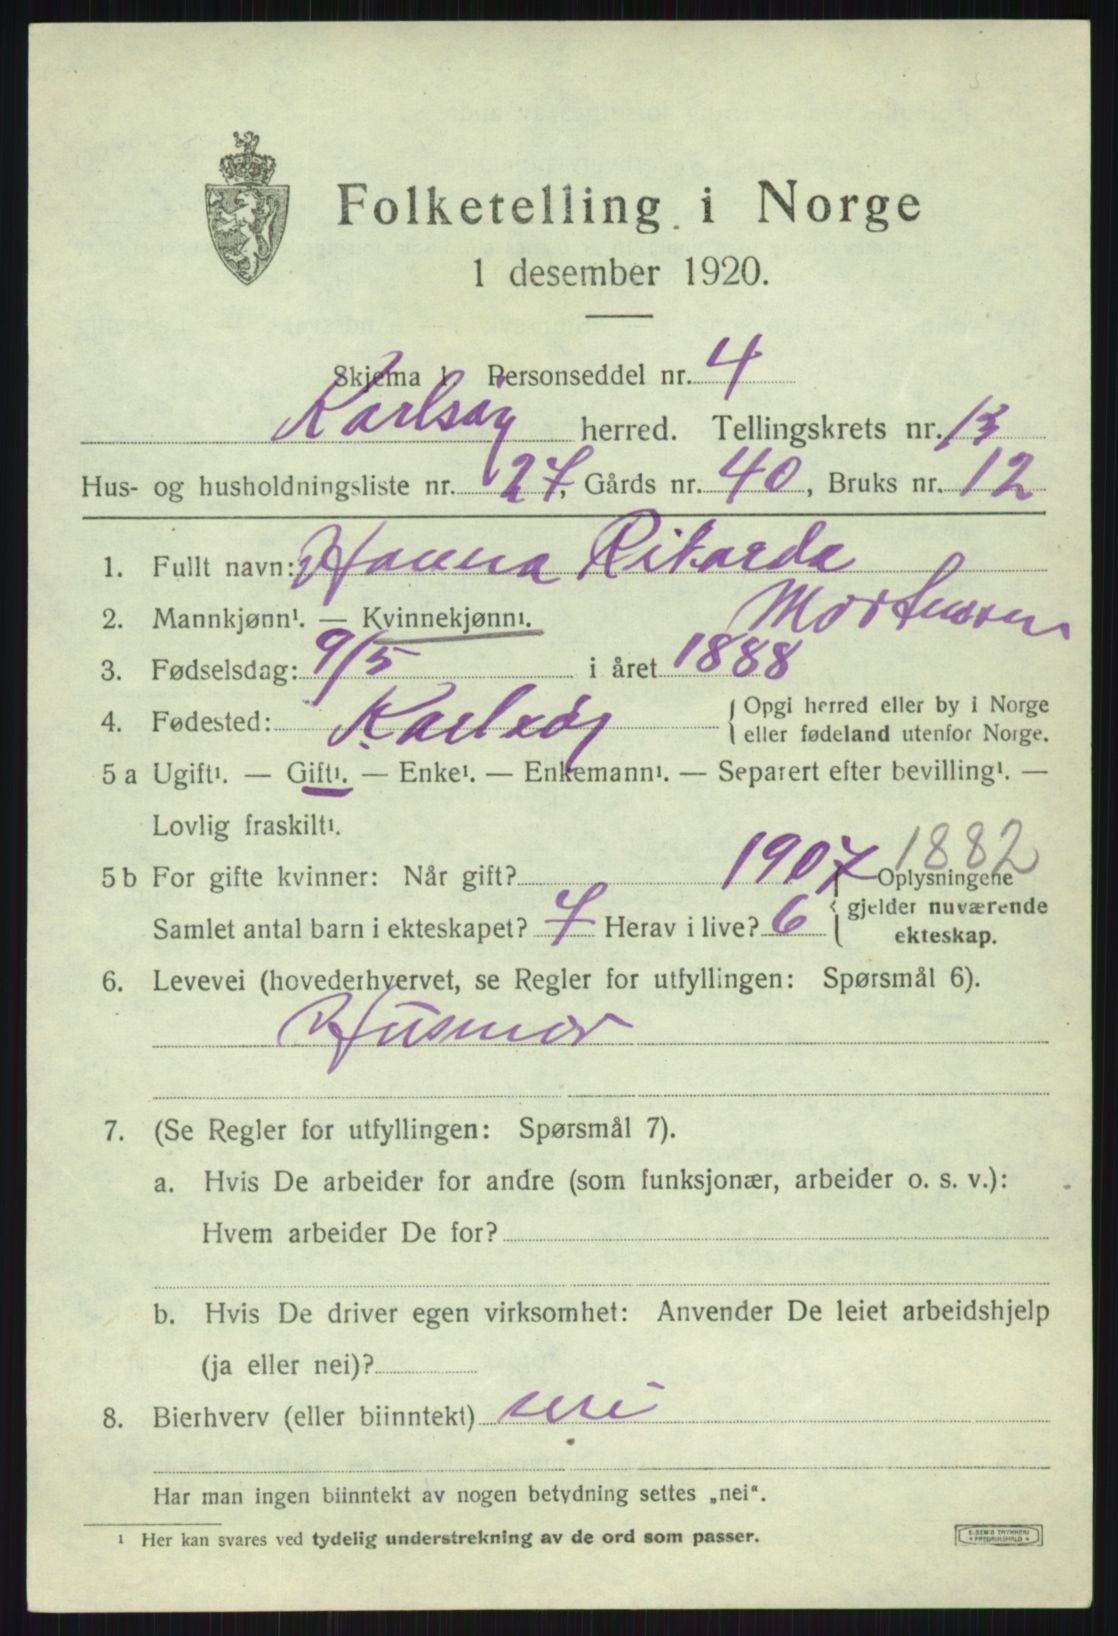 Folketelling i Norge
1 desember 1920.
Skjema 1 Personseddel nr. 4
Karlsøy herred. Tellingskrets nr. 13
Hus- og husholdningsliste nr. 27, Gårds nr. 40, Bruks nr. 12
1. Fullt navn: Hanna Rikarda
Mortensen
2. Mannkjønn¹. — Kvinnekjønn¹.
3. Fødselsdag: 9/5 i året 1888
4. Fødested: Karlsøy { Opgi herred eller by i Norge
eller fødeland utenfor Norge.
5 a Ugift¹. — Gift¹. — Enke¹. — Enkemann¹. — Separert efter bevilling¹. —
Lovlig fraskilt¹.
1882
5 b For gifte kvinner: Når gift? 1907 { Oplysningene
Samlet antal barn i ekteskapet? 7 Herav i live? 6 gjelder nuværende
ekteskap.
6. Levevei (hovederhvervet, se Regler for utfyllingen: Spørsmål 6).
Husmor
7. (Se Regler for utfyllingen: Spørsmål 7).
a. Hvis De arbeider for andre (som funksjonær, arbeider o. s. v.):
Hvem arbeider De for?
b. Hvis De driver egen virksomhet: Anvender De leiet arbeidshjelp
(ja eller nei)?
8. Bierhverv (eller biinntekt) nei
Har man ingen biinntekt av nogen betydning settes „nei“.
¹ Her kan svares ved tydelig understrekning av de ord som passer.
E. SEM'S TRYKKERI
FREDRIKSHALD